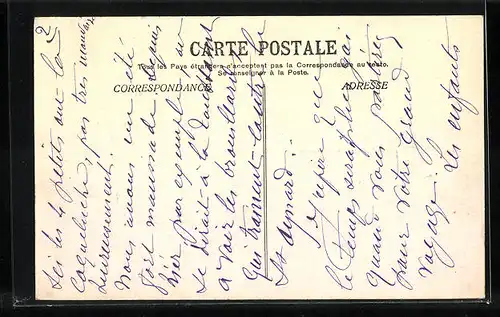 CARTE POSTALE
Tous les Pays étrangers n'acceptent pas la Correspondance au recto.
Se renseigner à la Poste.
CORRESPONDANCE
ADRESSE
Ici les 4 petits ont la
coqueluche, pas trop mauvaise
heureusement.
Nous avons un été
fort maussade depuis
hier par exemple, on
se dirait à la Toussaint
à voir les brouillards
qui trainent contre le
St Aynard.
J'espère que
le temps
quand vous
pour votre grand
voyage. Les enfants